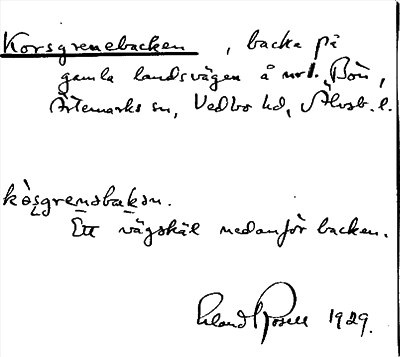 Korsgrenebacken, backa på
gamla landsvägen å nr 1. Bön,
Ärtemarks sn, Vedbo hd, Älvsb. l.
kòs̨grenəbakən.
Ett vägskäl nedanför backen.
Erland Rosell 1929.